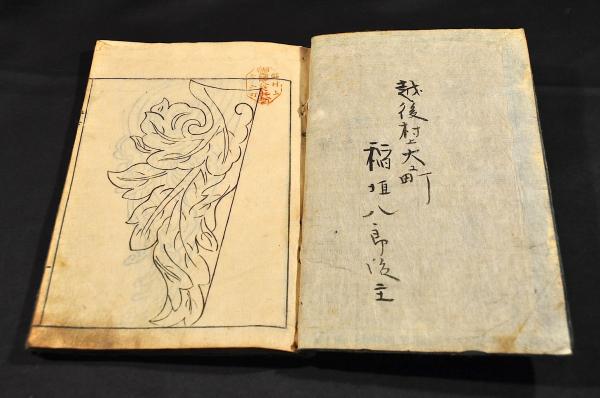 越後村上大工町
稲垣八郎主